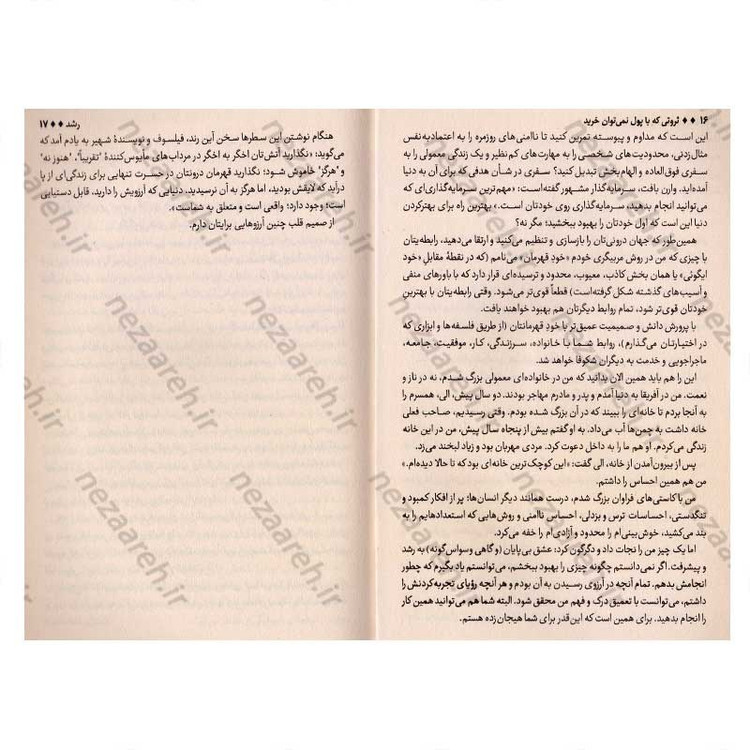 ۱۶ ♦♦ ثروتی که با پول نمی‌توان خرید
این است که مداوم و پیوسته تمرین کنید تا ناامنی‌های روزمره را به اعتمادبه‌نفس
مثال‌زدنی، محدودیت‌های شخصی را به مهارت‌های کم‌نظیر و یک زندگی معمولی را به
سفری فوق‌العاده و الهام‌بخش تبدیل کنید؟ سفری در شأن هدفی که برای آن به دنیا
آمده‌اید. وارن بافت، سرمایه‌گذار مشهور گفته‌است: «مهم‌ترین سرمایه‌گذاری‌ای که
می‌توانید انجام بدهید، سرمایه‌گذاری روی خودتان است.» بهترین راه برای بهترکردن
دنیا این است که اول خودتان را بهبود ببخشید؛ مگر نه؟
همین‌طور که جهان درونی‌تان را بازسازی و تنظیم می‌کنید و ارتقا می‌دهید، رابطه‌یتان
با چیزی که من در روش مربیگری خودم «خودِ قهرمان» می‌نامم (که در نقطهٔ مقابلِ «خودِ
ایگوئی» یا همان بخش کاذب، معیوب، محدود و ترسیده‌ای قرار دارد که با باورهای منفی
و آسیب‌های گذشته شکل گرفته‌است) قطعاً قوی‌تر می‌شود. وقتی رابطه‌یتان با بهترینِ
خودتان قوی‌تر شد، تمام روابط دیگرتان هم بهبود خواهند یافت.
با پرورش دانش و صمیمیت عمیق‌تر با خودِ قهرمانتان (از طریق فلسفه‌ها و ابزاری که
در اختیارتان می‌گذارم)، روابط شما با خانواده، سرزندگی، کار، موفقیت، جامعه،
ماجراجویی و خدمت به دیگران شکوفا خواهد شد.
این را هم باید همین الان بدانید که من در خانواده‌ای معمولی بزرگ شدم، نه در ناز و
نعمت. من در آفریقا به دنیا آمدم و پدر و مادرم مهاجر بودند. دو سال پیش، الی، همسرم را
به آنجا بردم تا خانه‌ای را ببیند که در آن بزرگ شده بودم. وقتی رسیدیم، صاحب فعلی
خانه داشت به چمن‌ها آب می‌داد. به او گفتم بیش از پنجاه سال پیش، من در این خانه
زندگی می‌کردم. او هم ما را به داخل دعوت کرد. مردی مهربان بود و زیاد لبخند می‌زد.
پس از بیرون‌آمدن از خانه، الی گفت: «این کوچک‌ترین خانه‌ای بود که تا حالا دیده‌ام.»
من هم همین احساس را داشتم.
من با کاستی‌های فراوان بزرگ شدم، درست همانند دیگر انسان‌ها؛ پر از افکار کمبود و
تنگدستی، احساسات ترس و بزدلی، احساس ناامنی و روش‌هایی که استعدادهایم را به
بند می‌کشید، خوش‌بینی‌ام را محدود و آزادی‌ام را خفه می‌کرد.
اما یک چیز من را نجات داد و دگرگون کرد: عشق بی‌پایان (و گاهی وسواس‌گونه) به رشد
و پیشرفت. اگر نمی‌دانستم چگونه چیزی را بهبود ببخشم، می‌توانستم یاد بگیرم که چطور
انجامش بدهم. تمام آنچه در آرزوی رسیدن به آن بودم و هر آنچه رؤیای تجربه‌کردنش را
داشتم، می‌توانست با تعمیق درک و فهم من محقق شود. البته شما هم می‌توانید همین کار
را انجام بدهید. برای همین است که این‌قدر برای شما هیجان‌زده هستم.
رشد ♦♦ ۱۷
هنگام نوشتن این سطرها سخن آین رند، فیلسوف و نویسندهٔ شهیر به یادم آمد که
می‌گوید: «نگذارید آتش‌تان اخگر به اخگر در مرداب‌های مأیوس‌کنندهٔ "تقریباً"، "هنوز نه"
و "هرگز" خاموش شود؛ نگذارید قهرمان درونتان در حسرت تنهایی برای زندگی‌ای از پا
درآید که لایقش بودید، اما هرگز به آن نرسیدید. دنیایی که آرزویش را دارید، قابل دستیابی
است؛ وجود دارد؛ واقعی است و متعلق به شماست».
از صمیم قلب چنین آرزوهایی برایتان دارم.
nezaareh.ir